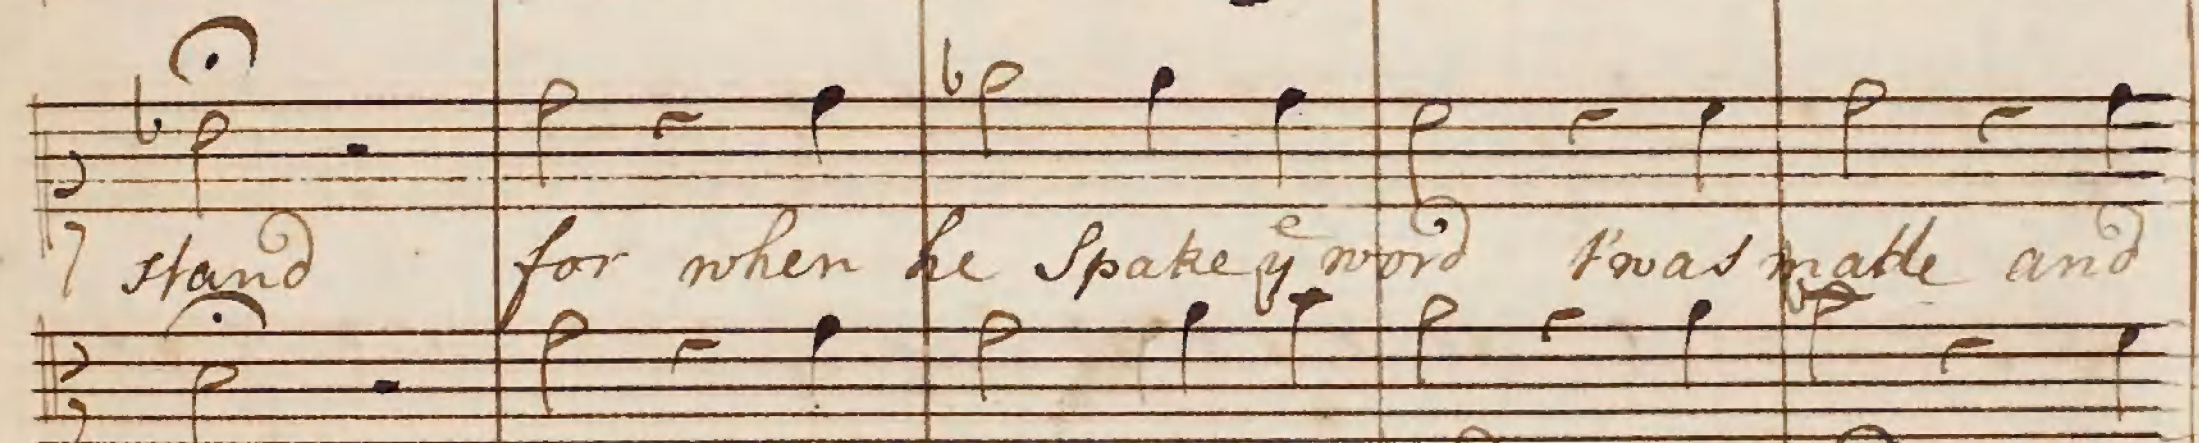 stand for when he Spake yᵉ word t'was made and